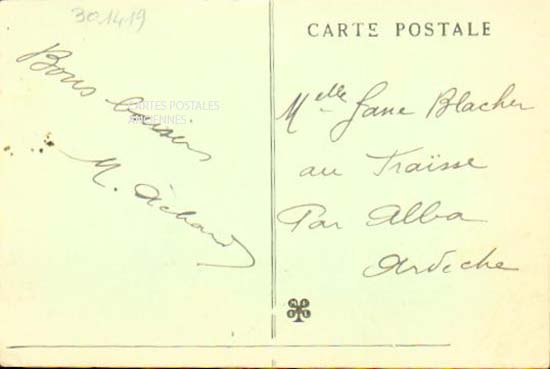 301419
CARTE POSTALE
Bons baisers
CARTES POSTALES
ANCIENNES
M. Achard
Melle Jane Blacher
au Fraïsse
Par Alba
Ardèche